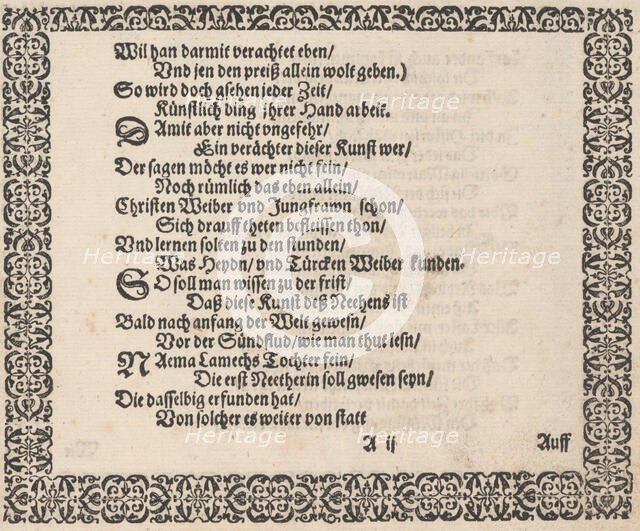 Wil han darmit verachtet eben/
Vnd jen den preiß allein wolt geben.)
So wird doch gsehen jeder Zeit/
Künstlich ding jhrer Hand arbeit.
DAmit aber nicht vngefehr/
Ein verächter dieser Kunst wer/
Der sagen möcht es wer nicht fein/
Noch rümlich das eben allein/
Christen Weiber vnd Jungfrawn schon/
Sich drauff theten befleissen thon/
Vnd lernen solten zu den stunden/
Was Heydn/ vnd Türcken Weiber kunden.
SO soll man wissen zu der frist/
Daß diese Kunst deß Neehens ist
Bald nach anfang der Welt gewesn/
Vor der Sündflud/ wie man thut lesn/
NAema Lamechs Tochter fein/
Die erst Neetherin soll gwesen seyn/
Die dasselbig erfunden hat/
Von solcher es weiter von statt
A ij
Auff
Heritage
Heritage
Heritage
Heritage
Heritage
Heritage
Heritage
Heritage
Heritage